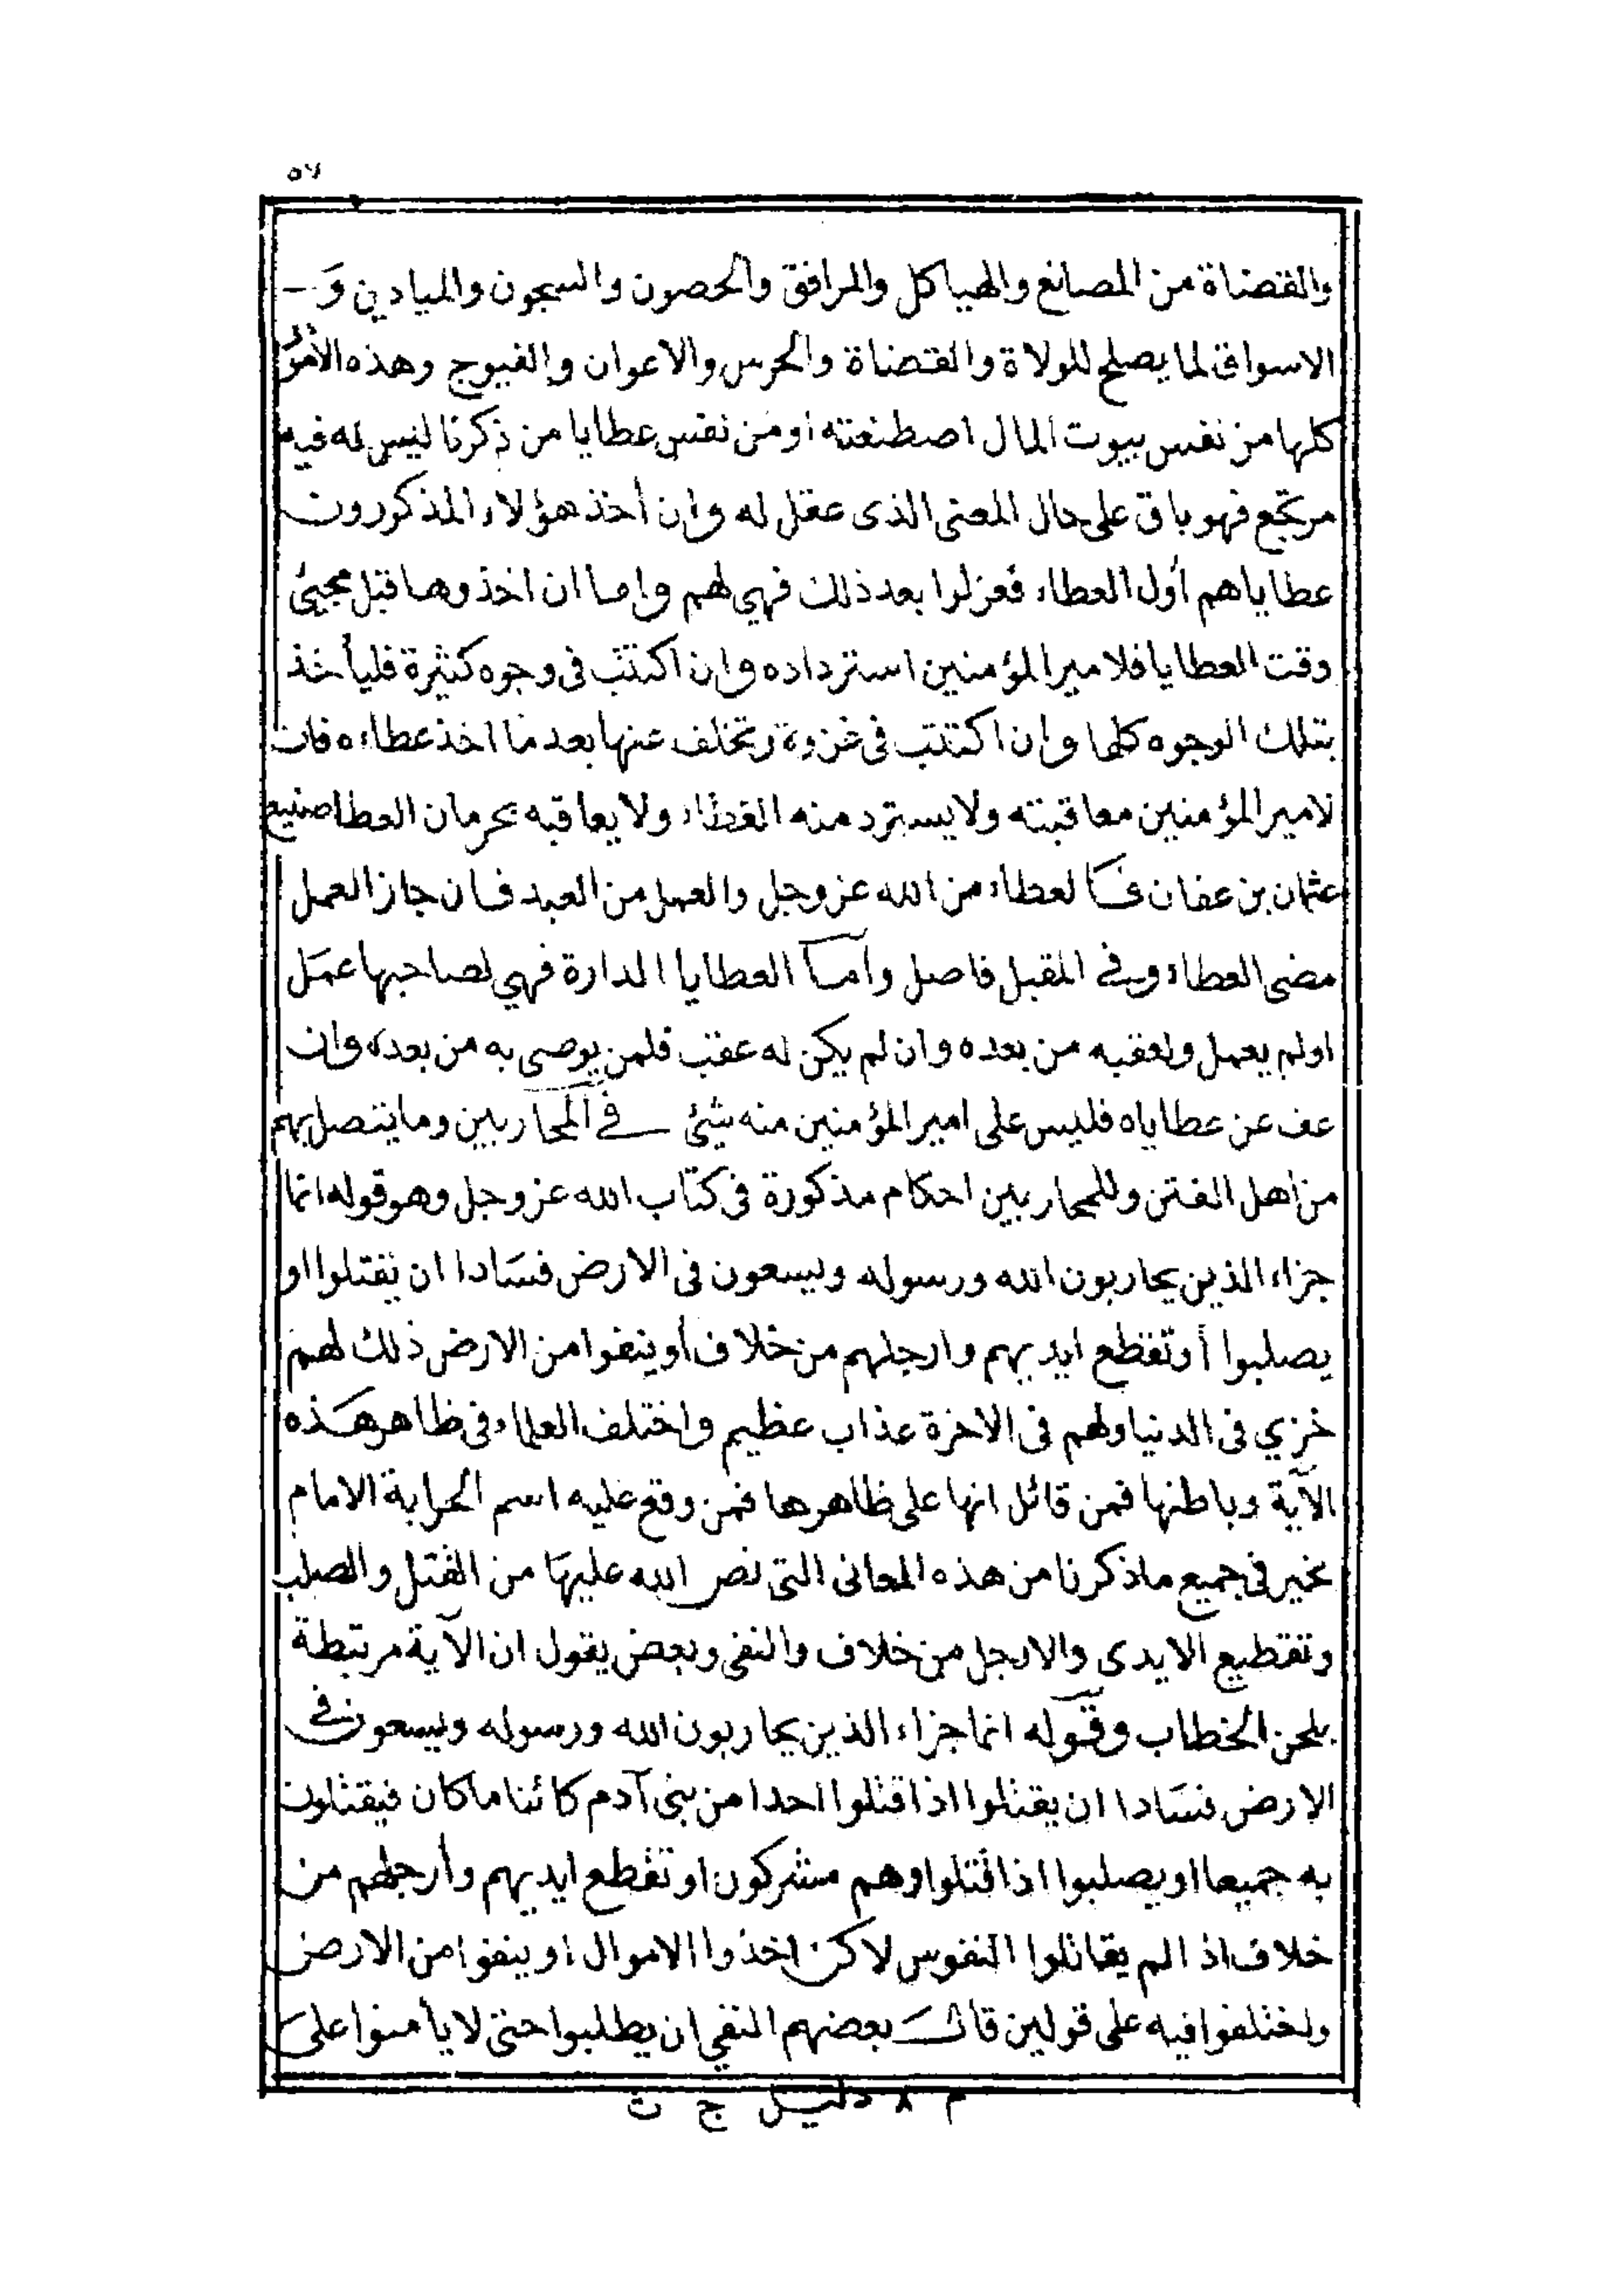 ٥٧
والقضاة من المصانع والهياكل والمرافق والحصون والسجون والميادين و-
الاسواق لما يصلح للولاة والقضاة والحرس والاعوان والفيوج وهذه الأمور
كلها من نفس بيوت المال اصطنعته او من نفس عطايا من ذكرنا ليس له فيه
مرتجع فهو باق على حال المعنى الذى عقل له وان أخذ هؤلاء المذكورون
عطاياهم أول العطاء فعزلوا بعد ذلك فهي لهم واما ان اخذوها قبل مجيئ
وقت العطايا فلامير المؤمنين استرداده وان اكتتب فى وجوه كثيرة فليأخذ
بتلك الوجوه كلها وان اكتتب فى غزوة وتخلف عنها بعد ما اخذ عطاءه فان
لامير المؤمنين معاقبته ولا يسترد منه العطاء ولا يعاقبه بحرمان العطا صنيع
عثمان بن عفان لعطاء من الله عز وجل والعمل من العبد فان جاز العمل
مضى العطاء وفي المقبل فاصل وأما العطايا الدارة فهي لصاحبها عمل
اولم يعمل ولعقبه من بعده وان لم يكن له عقب فلمن يوصى به من بعده وان
عف عن عطاياه فليس على امير المؤمنين منه شيئ في المحاربين وما يتصل بهم
من اهل الفتن وللمحاربين احكام مذكورة فى كتاب الله عز وجل وهو قوله انما
جزاء الذين يحاربون الله ورسوله ويسعون فى الارض فسادا ان يقتلوا او
يصلبوا أو تقطع ايديهم وارجلهم من خلاف أو ينفوا من الارض ذلك لهم
خزي فى الدنيا ولهم فى الاخرة عذاب عظيم واختلف العلماء فى ظاهر هذه
الآية وباطنها فمن قائل انها على ظاهرها فمن وقع عليه اسم الحرابة الامام
مخير فى جميع ما ذكرنا من هذه المعانى التى نص الله عليها من القتل والصلب
وتقطيع الايدى والارجل من خلاف والنفى وبعض يقول ان الآية مرتبطة
بلحن الخطاب وقوله انما جزاء الذين يحاربون الله ورسوله ويسعون في
الارض فسادا ان يقتلوا اذا قتلوا احدا من بنى آدم كائنا ما كان فيقتلون
به جميعا او يصلبوا اذا قتلوا وهم مشركون او تقطع ايديهم وأرجلهم من
خلاف اذا لم يقاتلوا النفوس لاكن اخذوا الاموال او ينفوا من الارض
واختلفوا فيه على قولين قال بعضهم النفي ان يطلبوا حتى لا يأمنوا على
م ٨ دليل ج ث